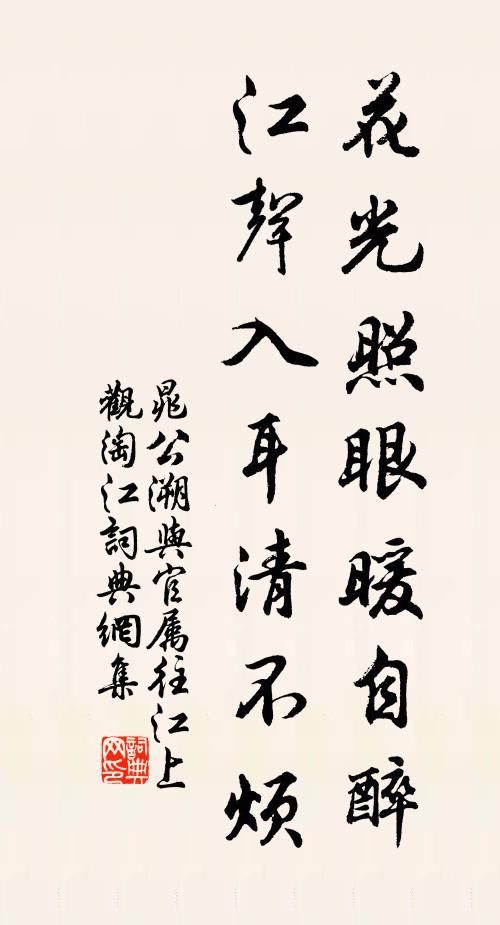 花光照眼暖自醉
江聲入耳清不煩
晁公溯與官属往江上
觀淘江詞典網集
詞典
网印